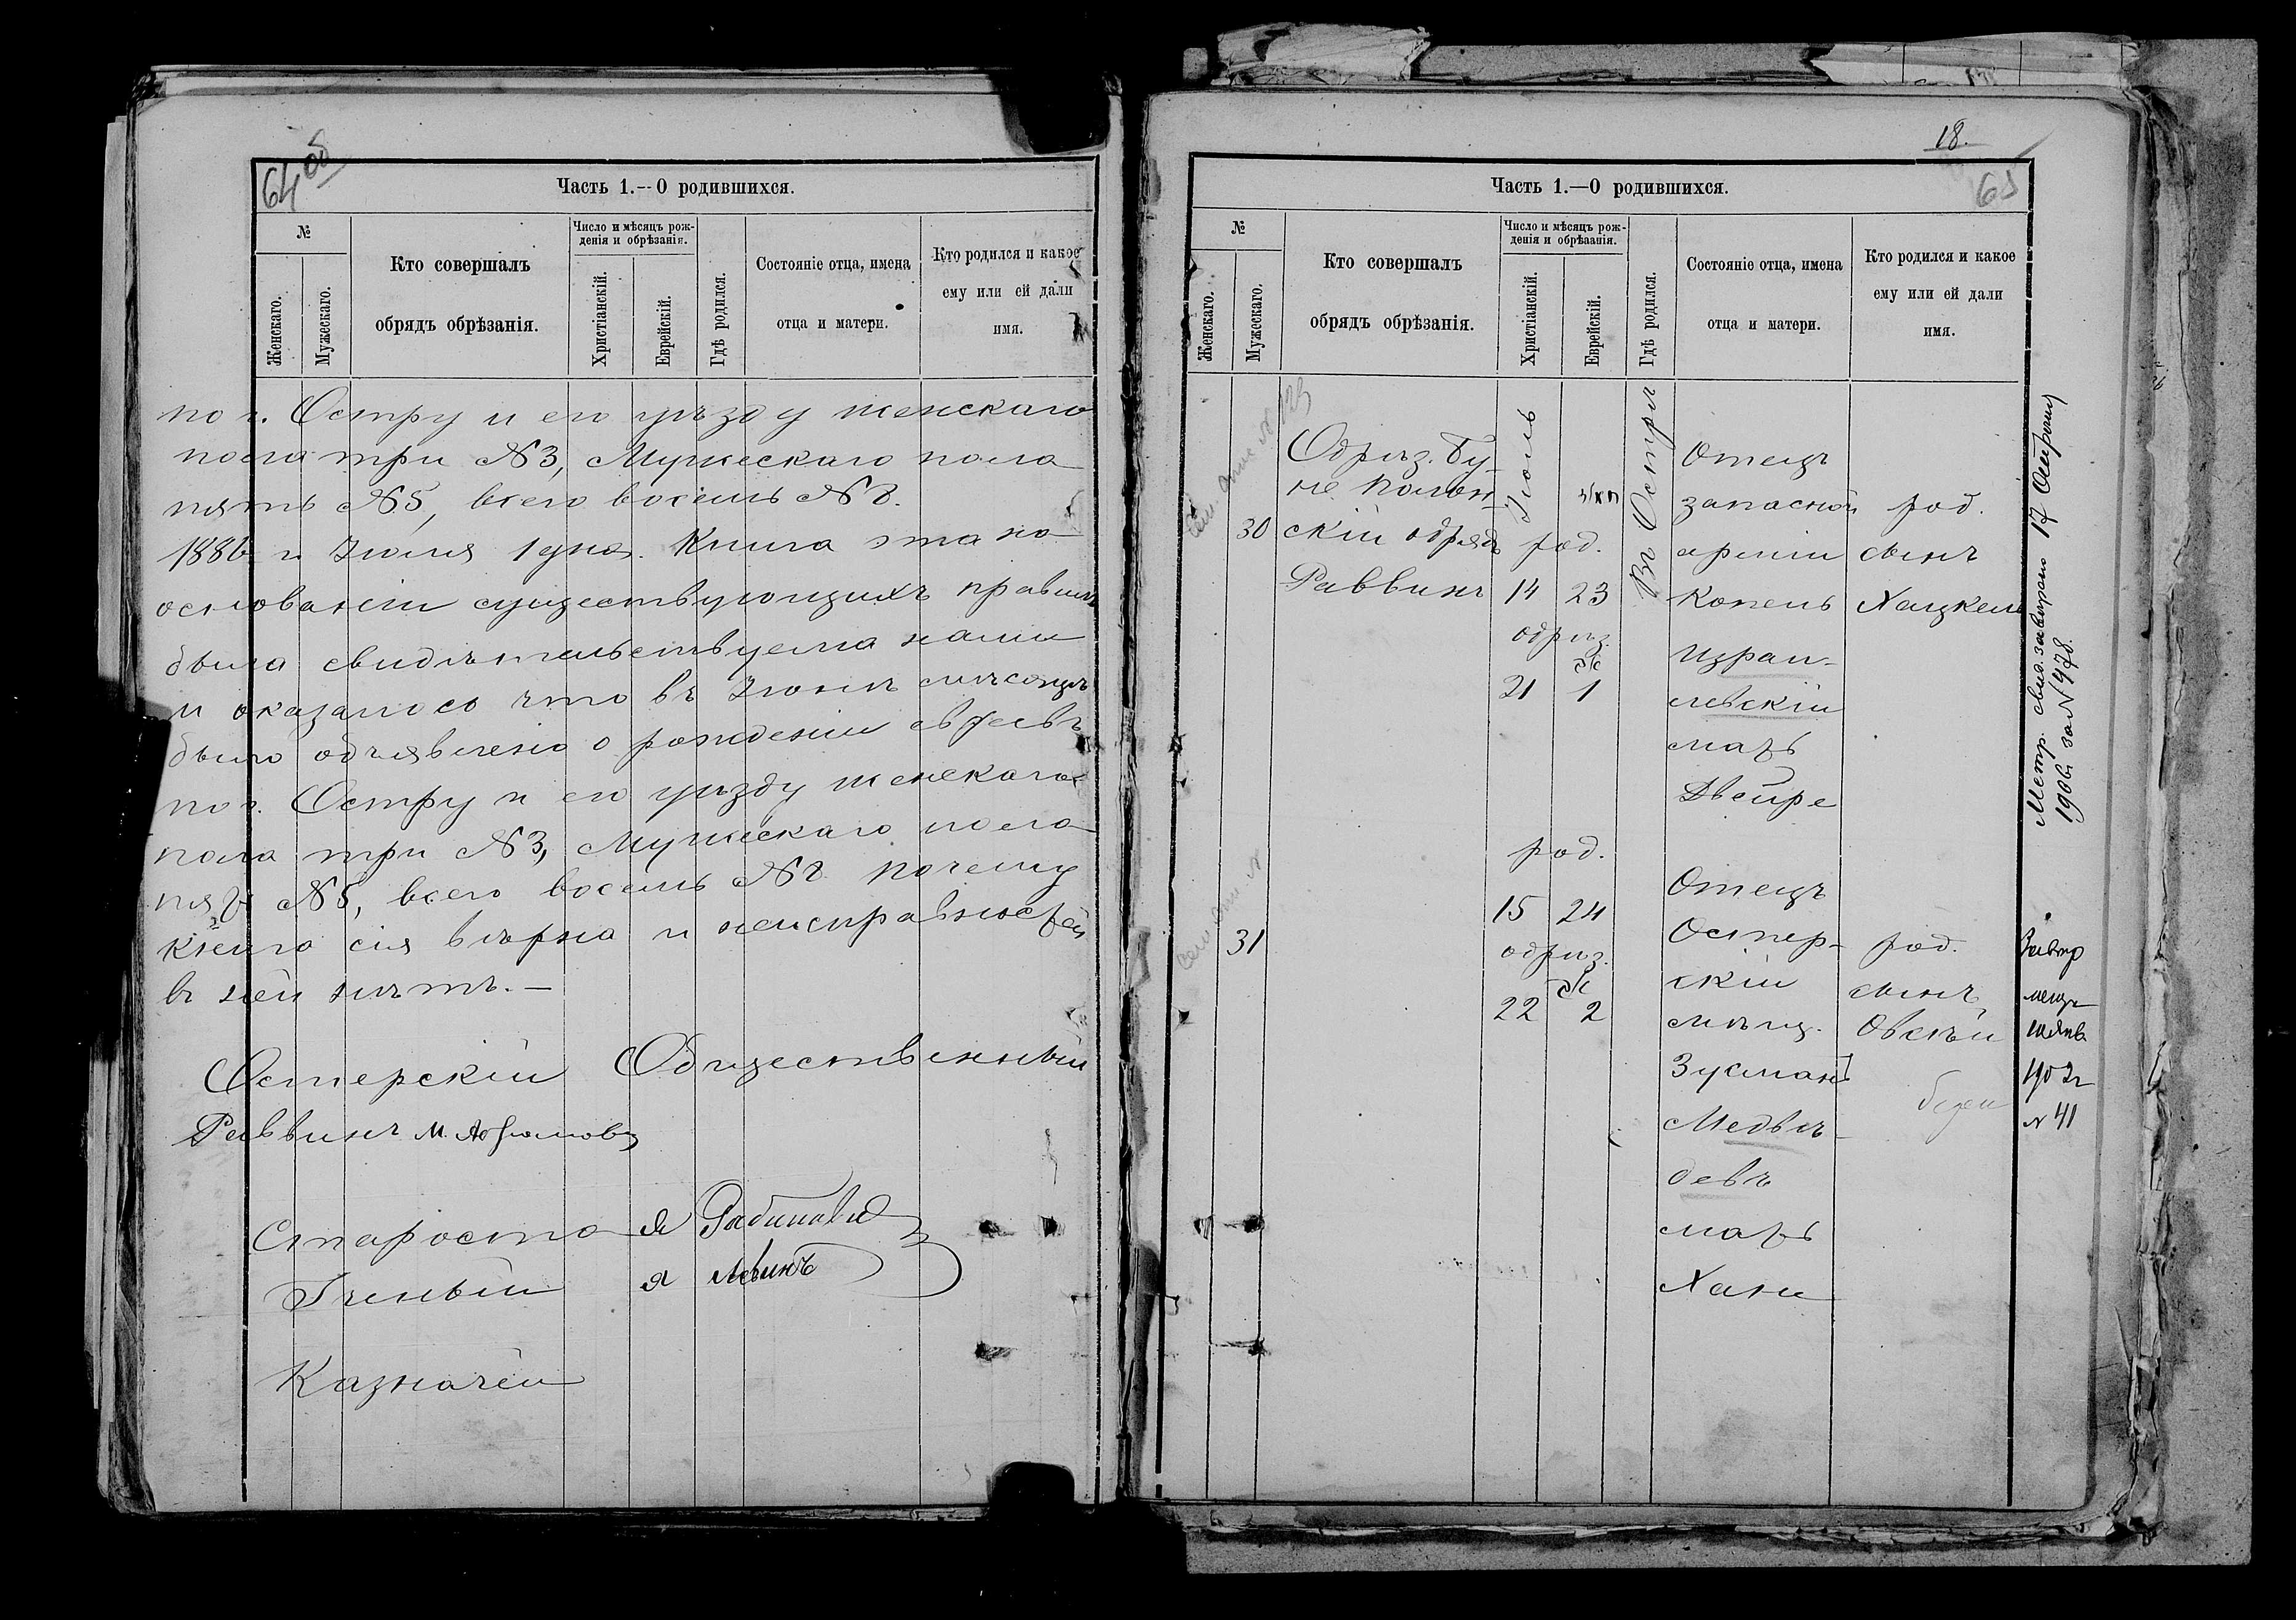 64 об
Часть 1.--О родившихся.
№
Женскаго.
Мужескаго.
Кто совершалъ
обрядъ обрѣзанія.
Число и мѣсяцъ рож-
денія и обрѣзанія.
Христіанскій.
Еврейскій.
Гдѣ родился.
Состояніе отца, имена
отца и матери.
Кто родился и какое
ему или ей дали
имя.
по г. Остру и его уѣзду женскаго
пола три №3, Мужескаго пола
пять №5, всего восемь №8.
1886 г. Июля 1 дня. Книга эта на
основаніи существующихъ правилъ
была свидѣтельствуема нами
и оказалось что въ Іюнѣ мѣсяцѣ
было объявлено о рожденіи евреевъ
по г. Остру и его уѣзду женскаго
пола три №3, Мужескаго пола
пять №5, всего восемь №8 почему
книга сія вѣрна и неисправностей
въ ней нѣтъ.—
Остерскій Общественный
Раввинъ М.
Староста Я Рабиновичъ
Ученый Я Левинъ
Казначей
18.
65
Часть 1.—О родившихся.
№
Женскаго.
Мужескаго.
Кто совершалъ
обрядъ обрѣзанія.
Число и мѣсяцъ рож-
денія и обрѣзанія.
Христіанскій.
Еврейскій.
Гдѣ родился.
Состояніе отца, имена
отца и матери.
Кто родился и какое
ему или ей дали
имя.
30
Обрѣз. бу-
не
скій обряд
Раввинъ
Іюль
род.
14 23
обрѣз.
21 1
Въ Острѣ
Отецъ
запасной
арміи
Копель
Израи-
левскій
мать
Двейре
род.
сынъ
Хацкель
Метр. свид. завѣрено 17
1906 за №478.
31
род.
15 24
обрѣз.
22 2
Отецъ
Остер-
скій
мѣщ.
Зусманъ
Медвѣ-
девъ
мать
Хане
род.
сынъ
Овсѣй
1902 г
№41